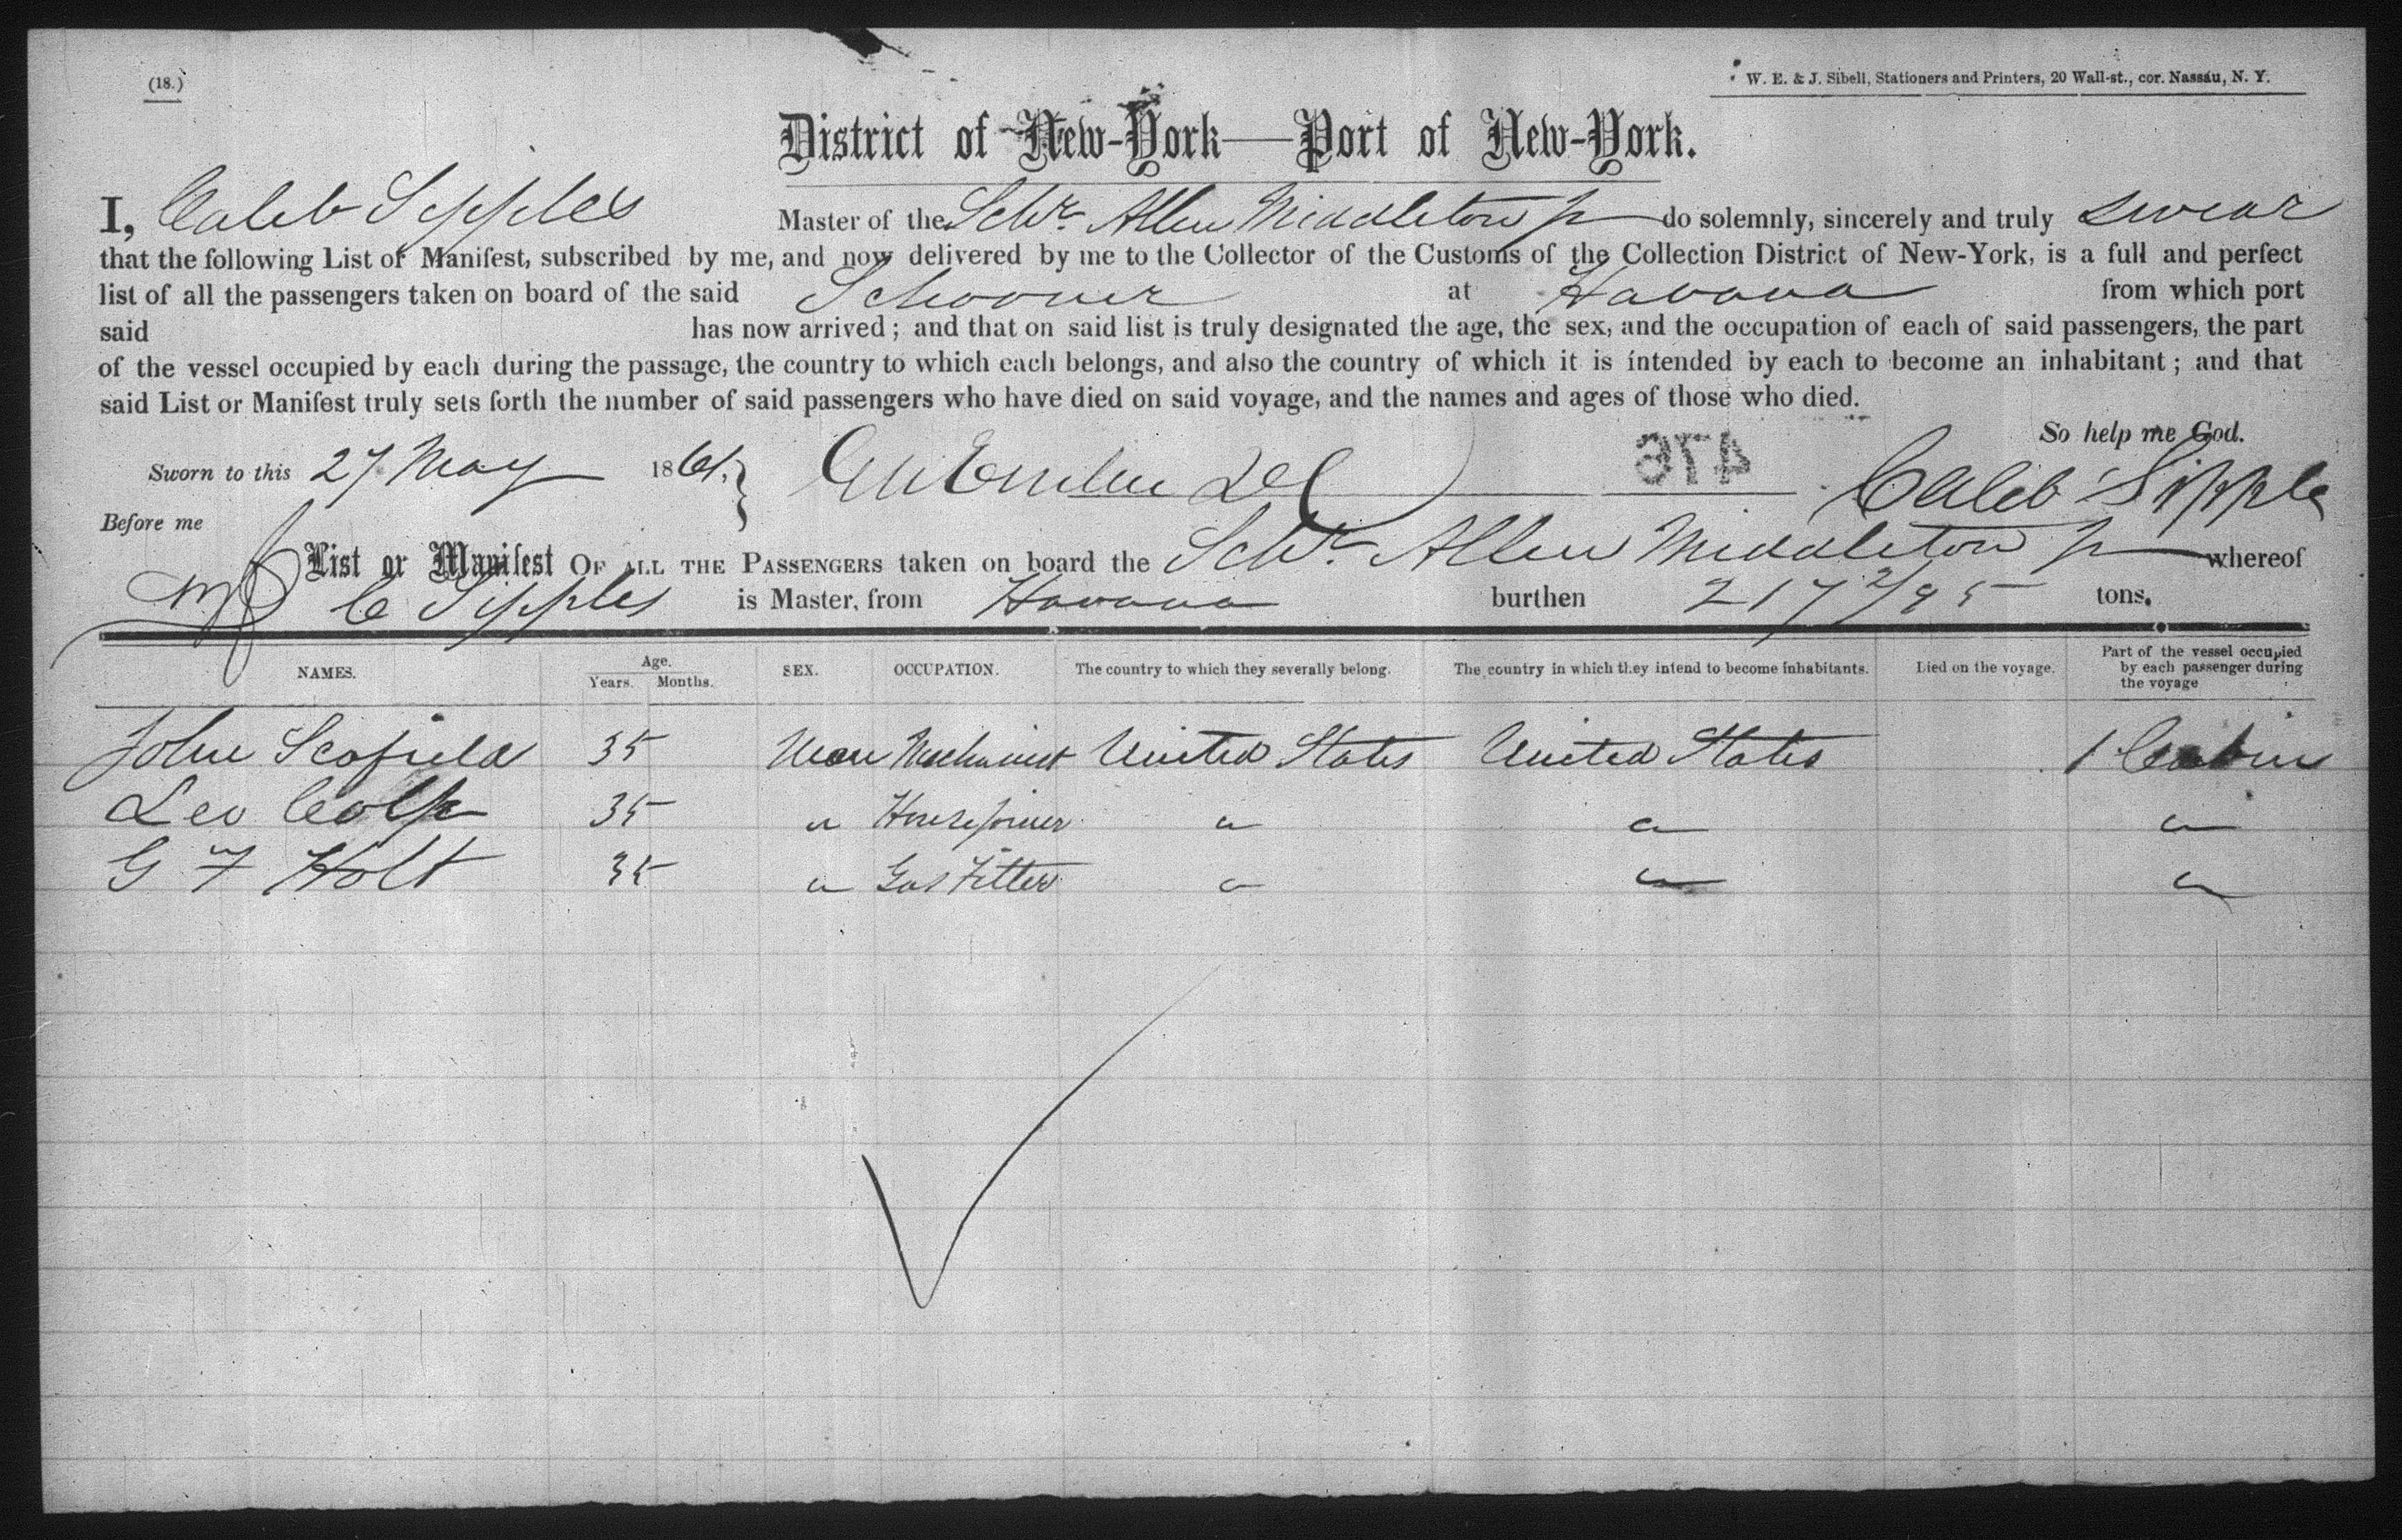 (18.)
W. E. & J. Sibell, Stationers and Printers, 20 Wall-st., cor. Nassau, N. Y.
District of New-York—Port of New-York.
I, Caleb Sipples Master of the Schr Allen Middleton Jr do solemnly, sincerely and truly swear
that the following List or Manifest, subscribed by me, and now delivered by me to the Collector of the Customs of the Collection District of New-York, is a full and perfect
list of all the passengers taken on board of the said Schooner at Havana from which port
said has now arrived; and that on said list is truly designated the age, the sex, and the occupation of each of said passengers, the part
of the vessel occupied by each during the passage, the country to which each belongs, and also the country of which it is intended by each to become an inhabitant; and that
said List or Manifest truly sets forth the number of said passengers who have died on said voyage, and the names and ages of those who died.
So help me God.
Sworn to this 27 May 1861. } 476 Caleb Sipple
Before me
List or Manifest OF ALL THE PASSENGERS taken on board the Schr Allen Middleton Jr whereof
C Sipples is Master, from Havana burthen 217 2/95 tons.
NAMES. Age. Years. Months. SEX. OCCUPATION. The country to which they severally belong. The country in which they intend to become inhabitants. Died on the voyage. Part of the vessel occupied by each passenger during the voyage
John Scofield 35 Man Mechanist United States United States 1 Cabin
Leo 35 " House joiner " " "
G F Holt 35 " Gas Fitter " " "